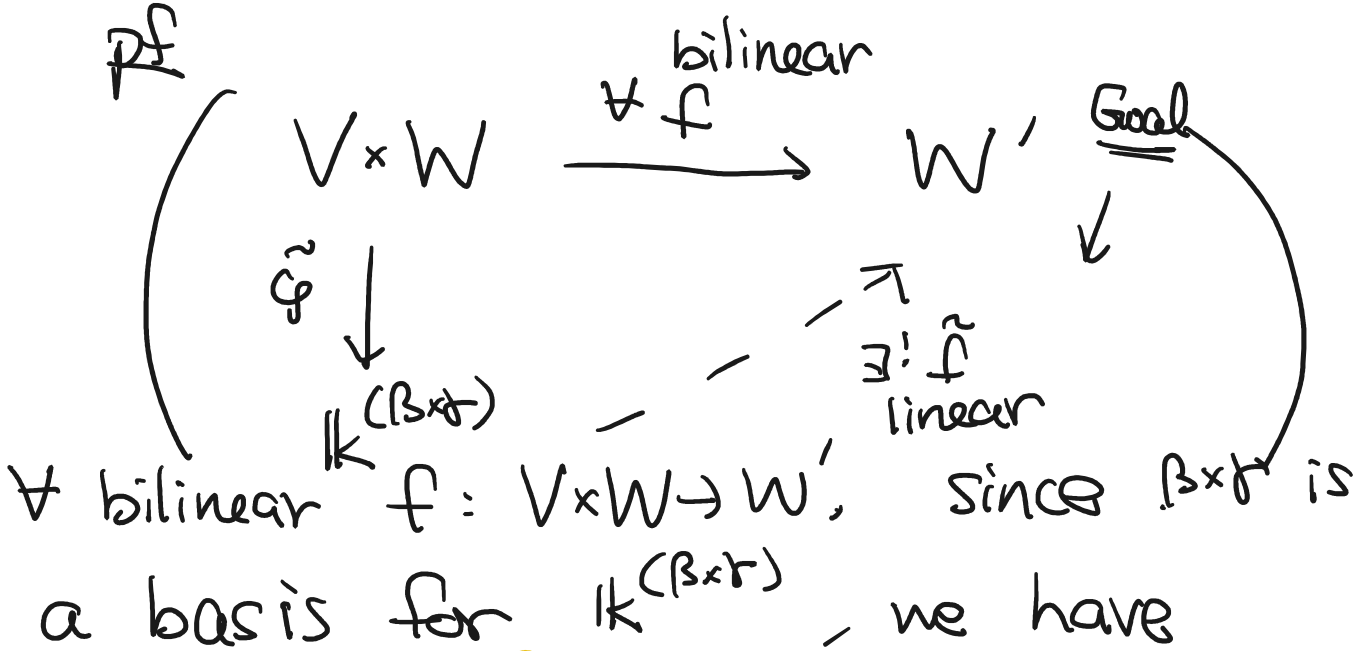 pf
∀ f bilinear
V × W → W′ Goal
φ̃ ↓ ↙
∃! f̃
𝕜^(β×γ) linear
∀ bilinear f: V×W→W′, since β×γ is
a basis for 𝕜^(β×γ), we have